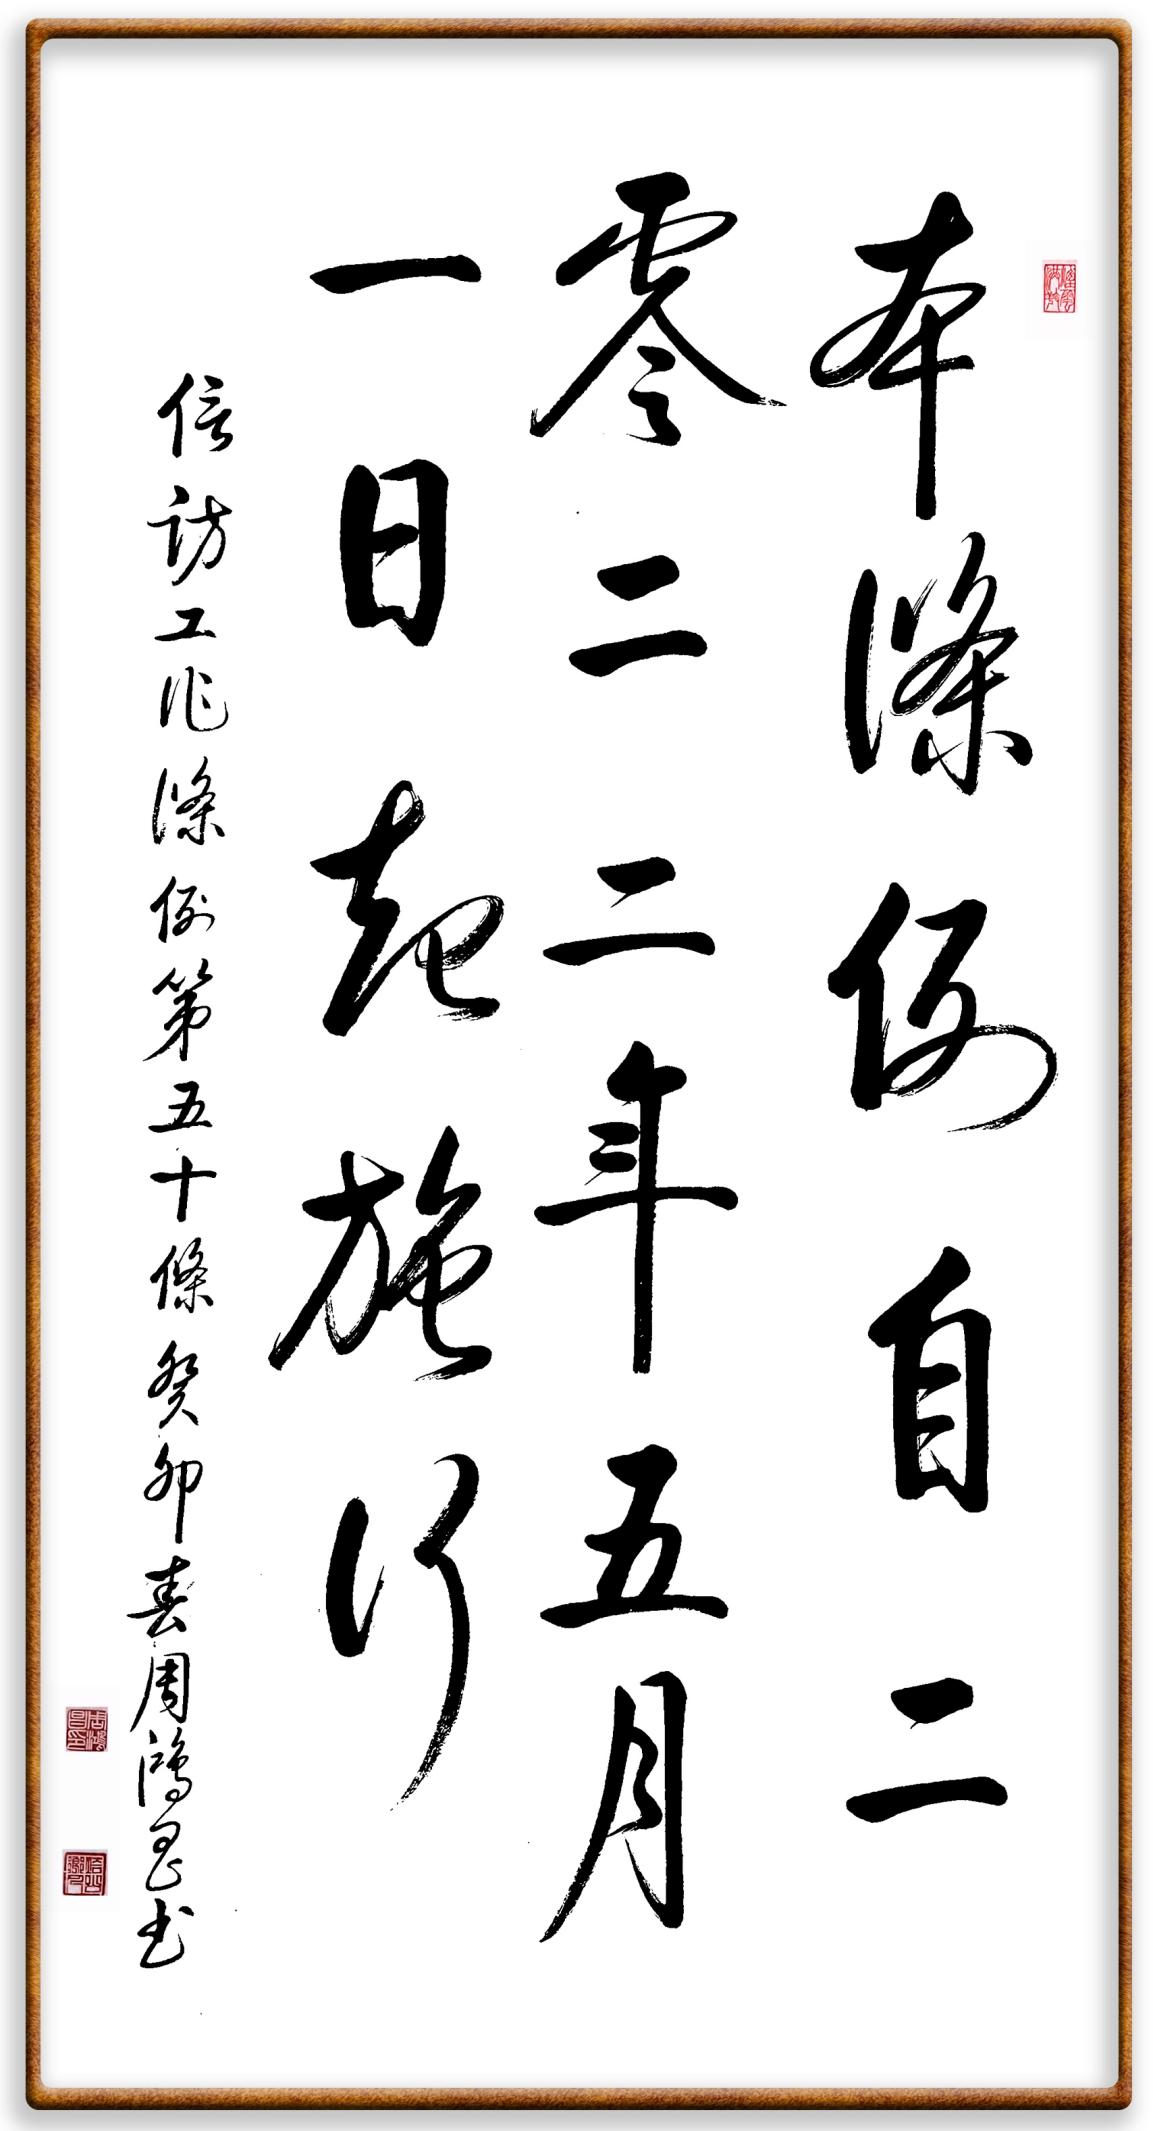 本條例自二
零二二年五月
一日起施行
信訪工作條例第五十條癸卯春周鴻昌书